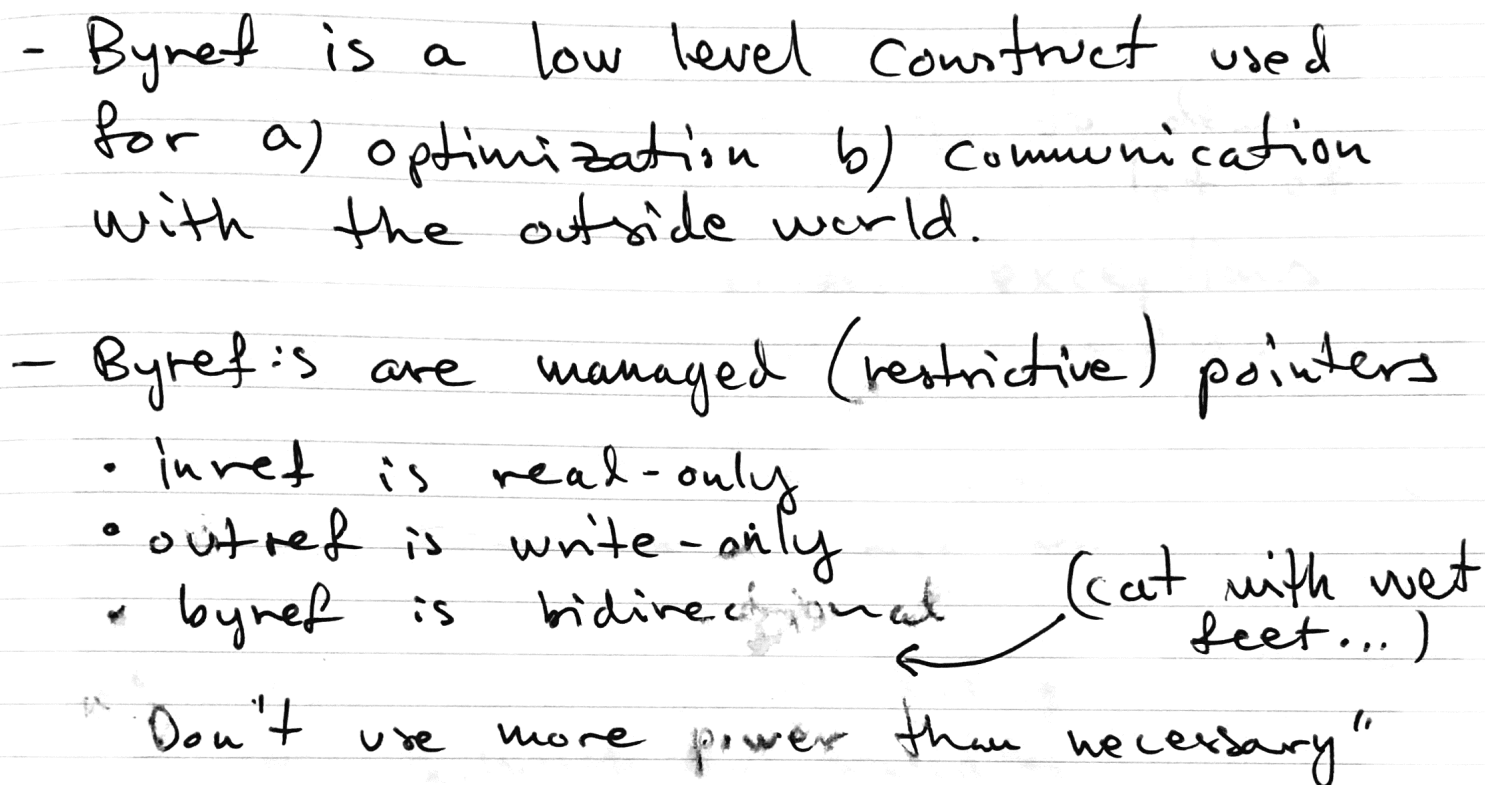 - Byref is a low level construct used
for a) optimization b) communication
with the outside world.
- Byref:s are managed (restrictive) pointers
• inref is read-only
• outref is write-only
• byref is bidirectional
(cat with wet
feet...)
"Don't use more power than necessary"